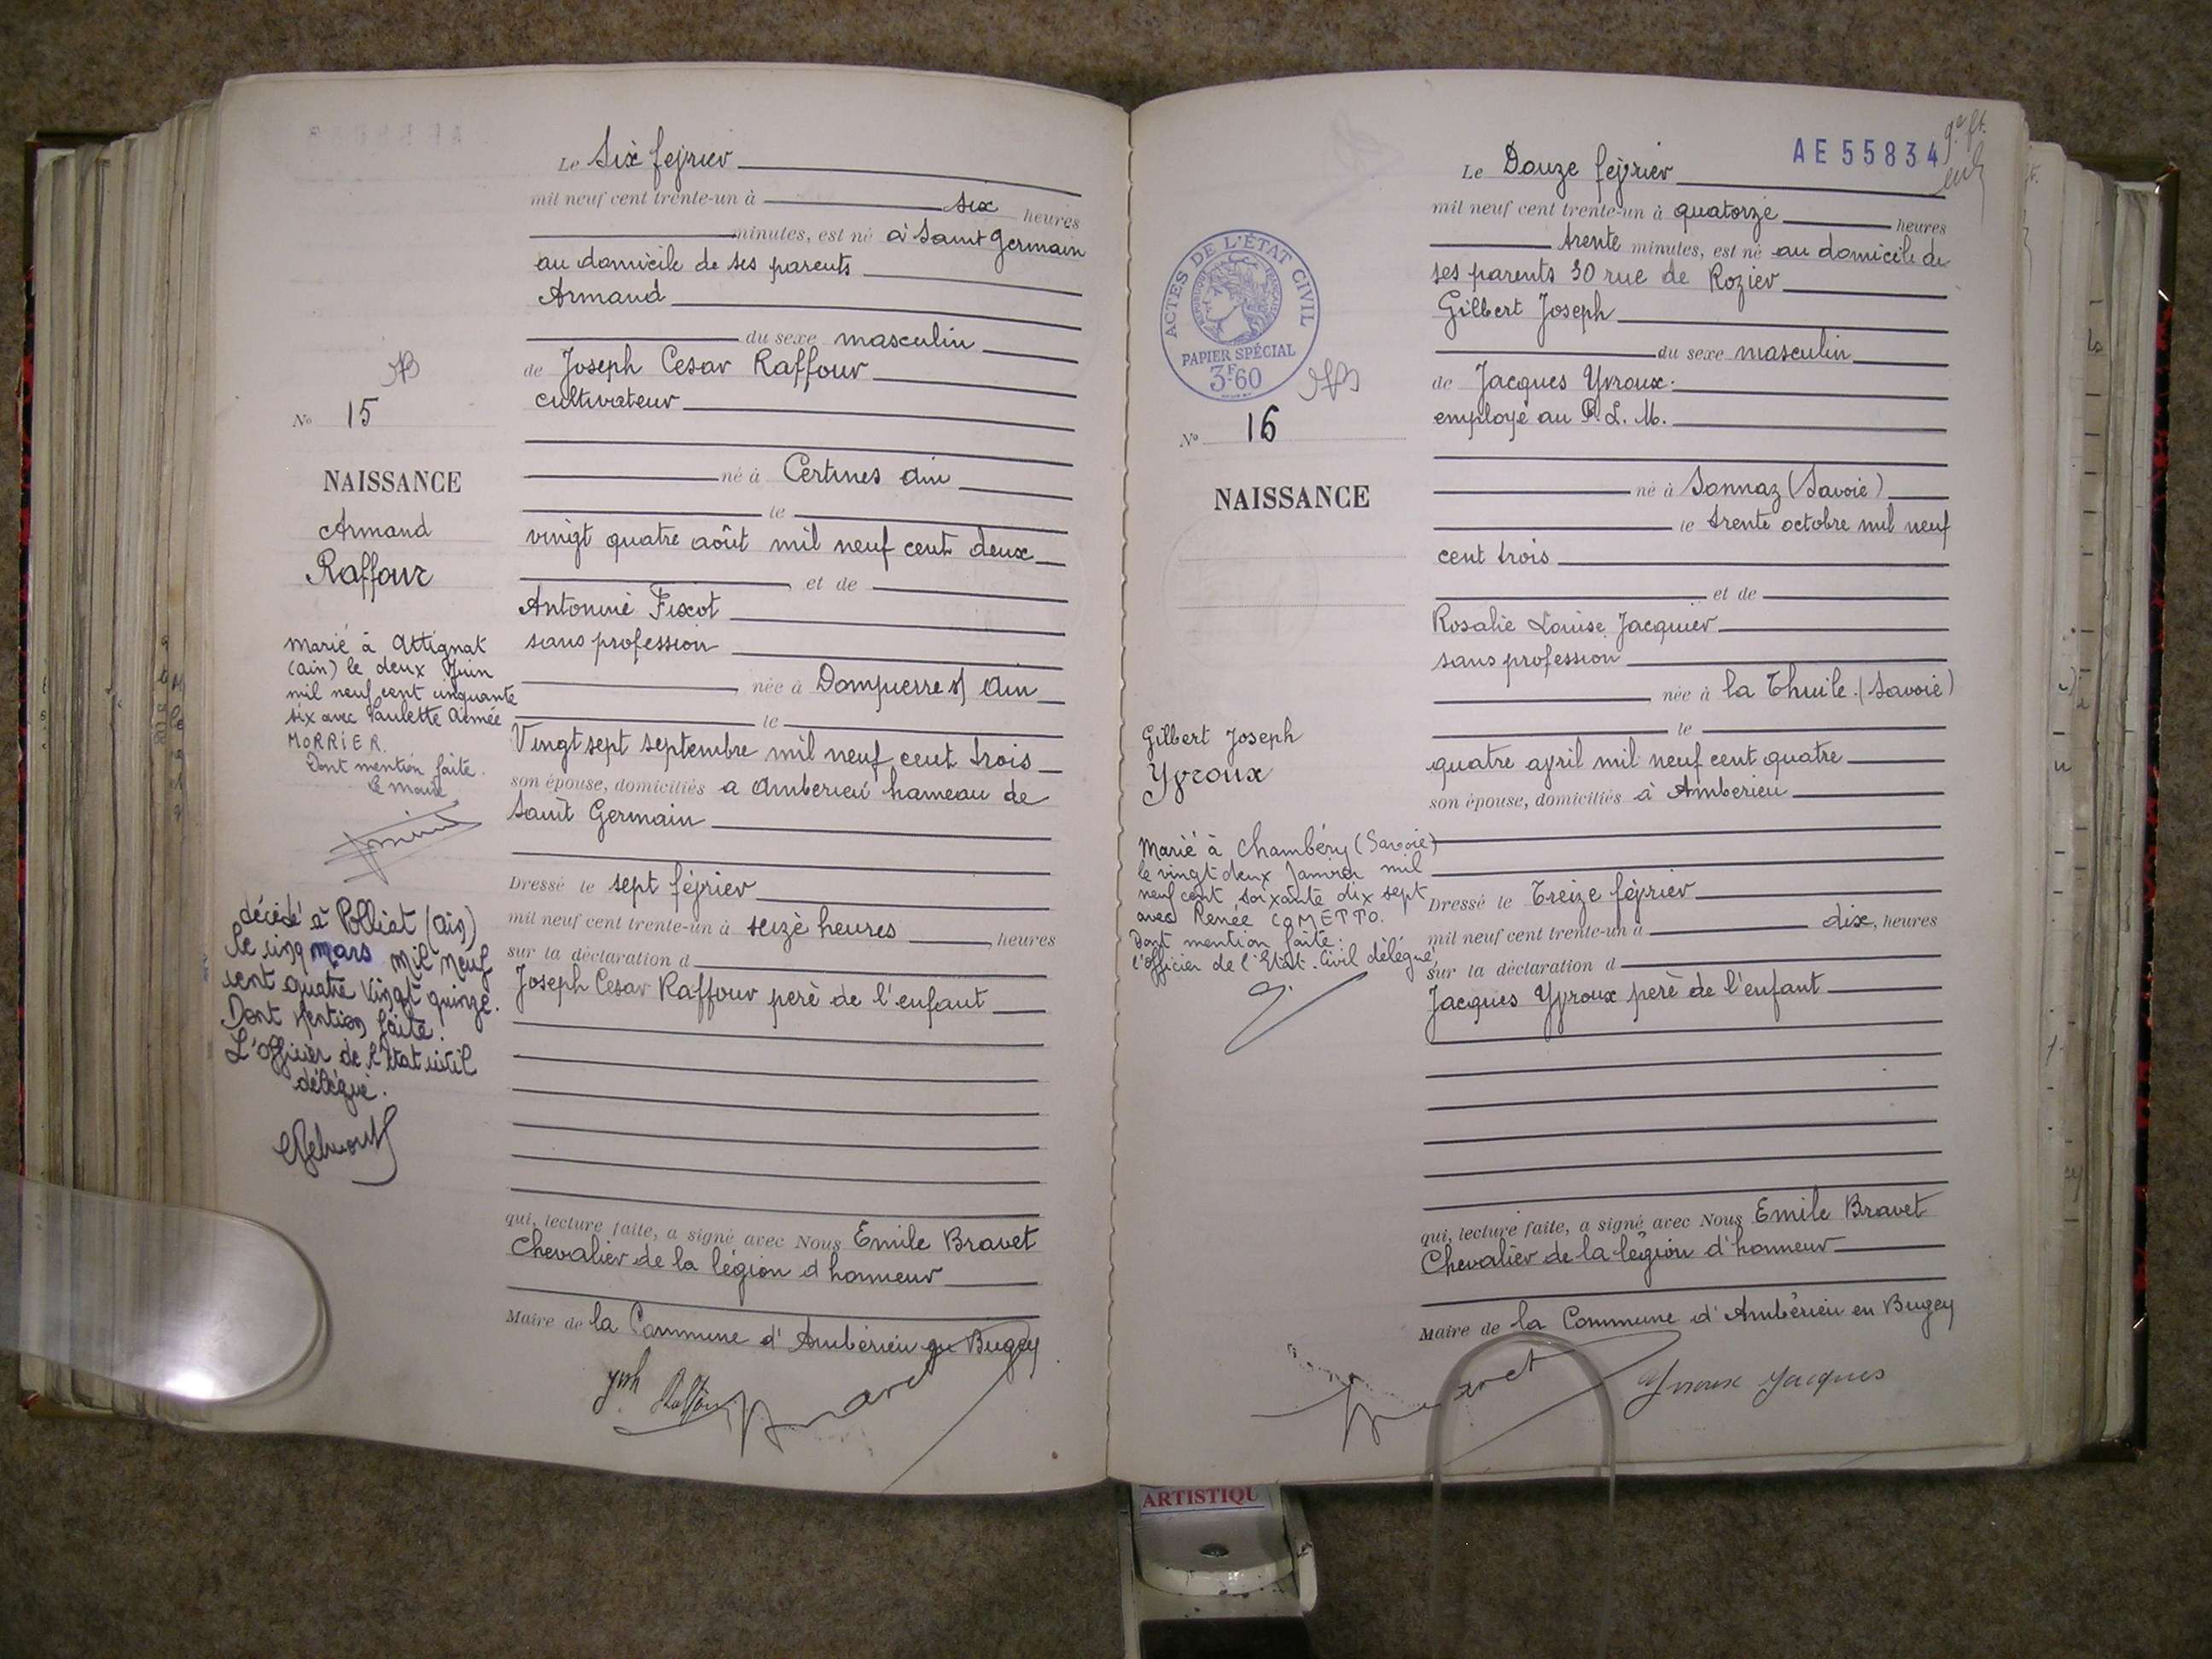 Le Six février
mil neuf cent trente-un à six heures
minutes, est né à Saint Germain
au domicile de ses parents
Armand
du sexe masculin
de Joseph Cesar Raffour
cultivateur
né à Certines Ain
le
vingt quatre août mil neuf cent deux
et de
Antonine Fixot
sans profession
née à Dompierre s/ Ain
le
Vingt sept septembre mil neuf cent trois
son épouse, domiciliés a Amberieu hameau de
Saint Germain
Dressé le sept février
mil neuf cent trente-un à seize heures heures
sur la déclaration d
Joseph Cesar Raffour père de l'enfant
qui, lecture faite, a signé avec Nous Emile Bravet
Chevalier de la légion d honneur
Maire de la Commune d'Ambérieu en Bugey
N° 15
NAISSANCE
Armand
Raffour
Marié à Attignat
(Ain) le deux Juin
mil neuf cent cinquante
six avec Paulette Aimée
MORRIER.
Dont mention faite.
Le Maire
décédé à Polliat (Ain)
le cinq mars mil neuf
cent quatre vingt quinze.
Dont Mention faite.
L'officier de l'état civil
délégué.
AE55834
Le Douze février
mil neuf cent trente-un à quatorze heures
trente minutes, est né au domicile de
ses parents 30 rue de Rozier
Gilbert Joseph
du sexe masculin
de Jacques Yvroux
employé au P.L.M.
né à Sonnaz (Savoie)
le trente octobre mil neuf
cent trois
et de
Rosalie Louise Jacquier
sans profession
née à la Thuile (Savoie)
le
quatre avril mil neuf cent quatre
son épouse, domiciliés à Amberieu
Dressé le Treize février
mil neuf cent trente-un à dix, heures
sur la déclaration d
Jacques Yvroux père de l'enfant
qui, lecture faite, a signé avec Nous Emile Bravet
Chevalier de la légion d'honneur
Maire de la Commune d'Ambérieu en Bugey
Yvroux Jacques
ACTES DE L'ÉTAT CIVIL
RÉPUBLIQUE FRANÇAISE
PAPIER SPÉCIAL
3F.60
N° 16
NAISSANCE
Gilbert Joseph
Yvroux
Marié à Chambéry (Savoie)
le vingt deux Janvier mil
neuf cent soixante dix sept
avec Renée COMETTO.
Dont mention faite:
l'officier de l'Etat-Civil délégué,
ARTISTIQU